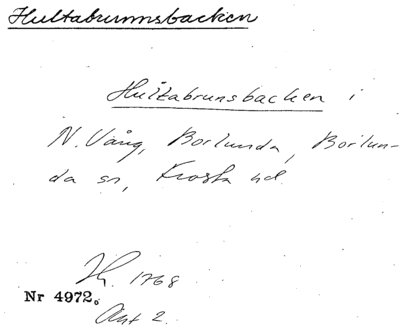 Hultabrunnsbacken
Hultabrunsbacken i
N. Vång, Borlunda, Borlun-
da sn, Frosta hd.
1768
Nr 4972.
Akt 2.